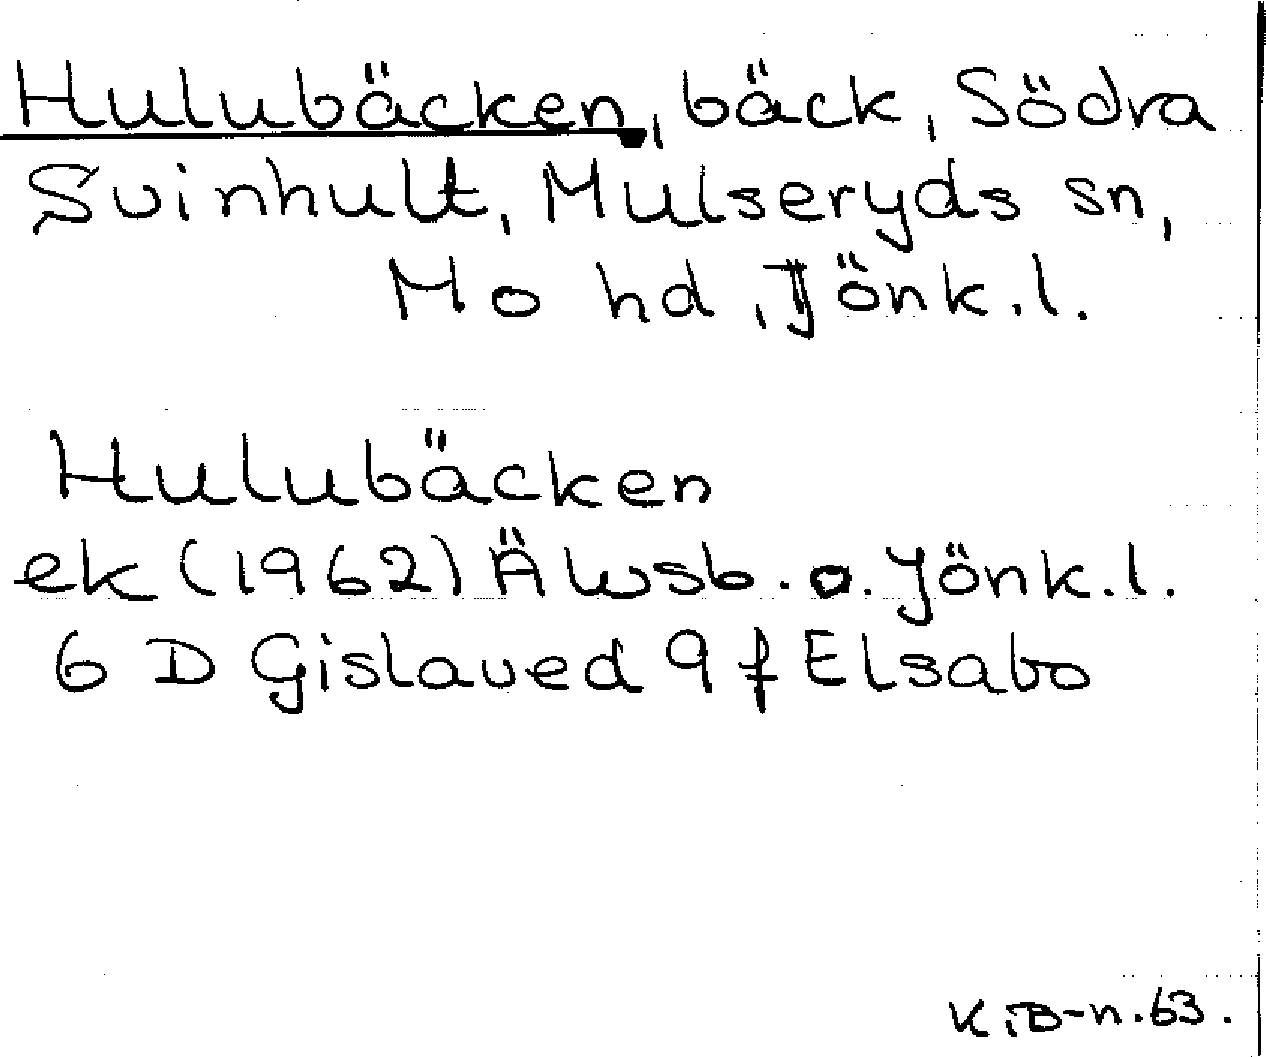 Hulubäcken, bäck, Södra
Svinhult, Mulseryds sn,
Mo hd, Jönk.l.
Hulubäcken
ek (1962) Älvsb. o. Jönk.l.
6 D Gislaved 9 f Elsabo
K.iB-n. 63.